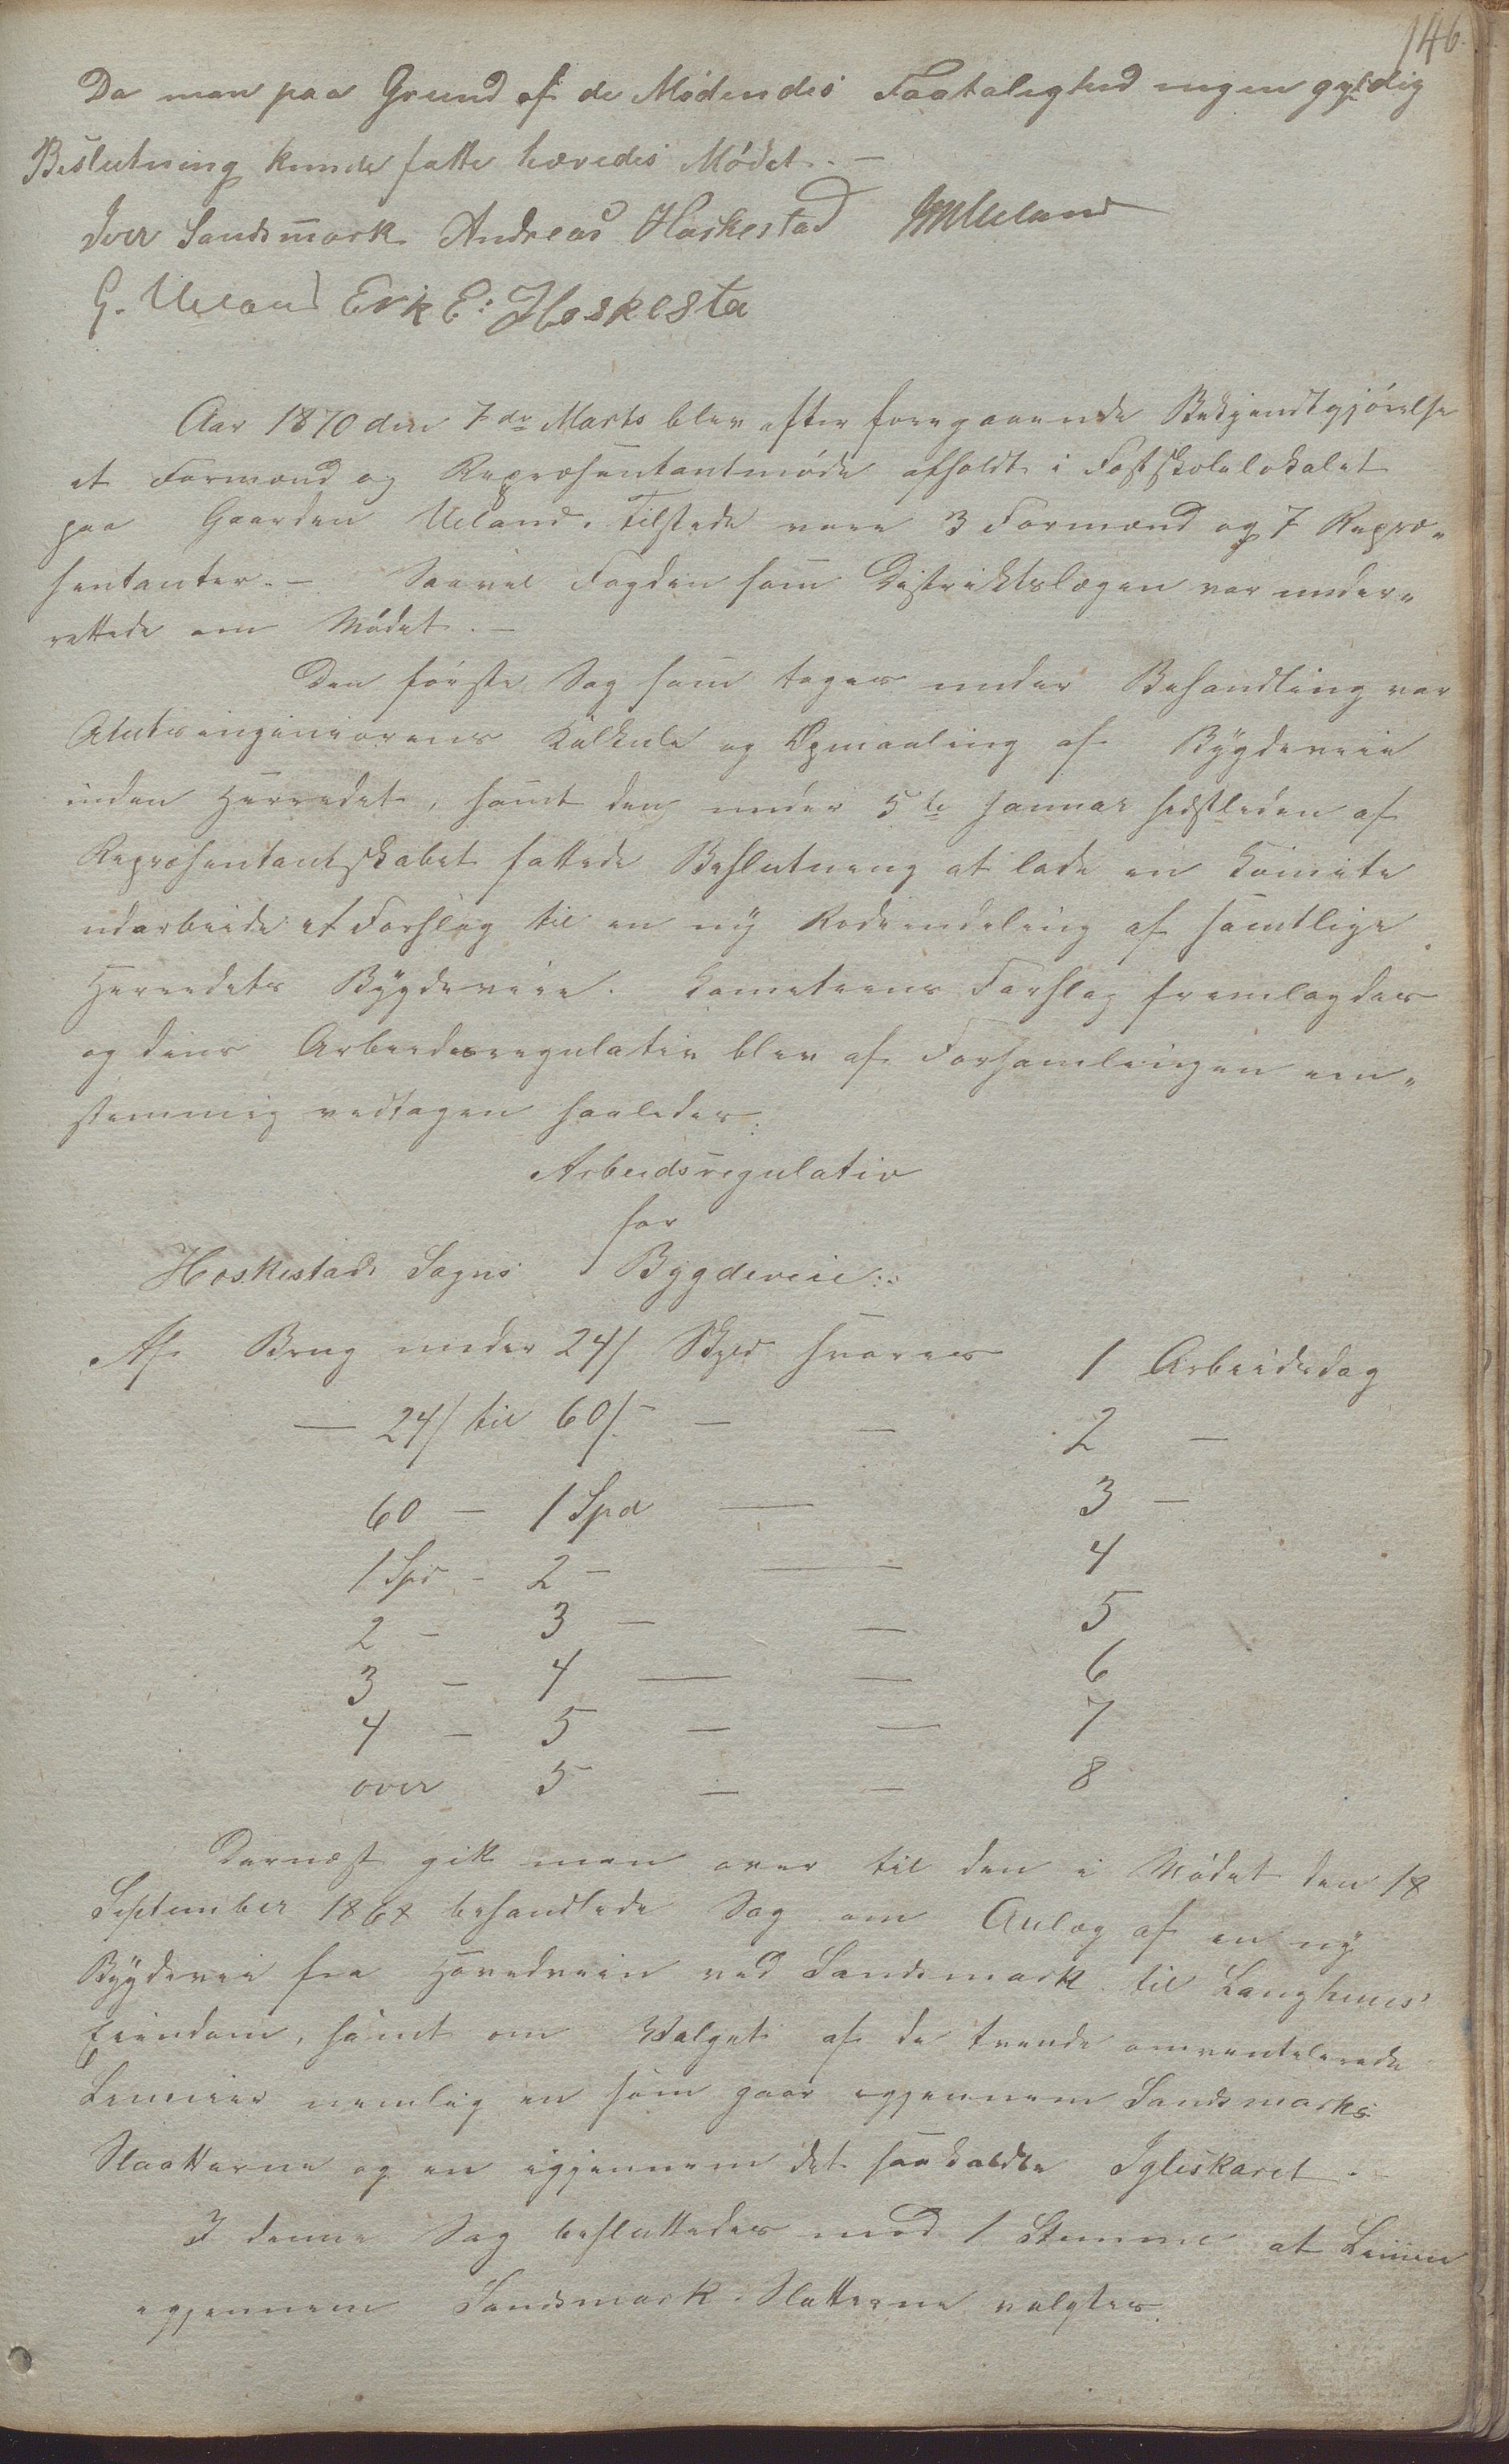 146.
Da man paa Grund af de Mødendes Faatalighed ingen gyldig
Beslutning kunde fatte hævedes Mødet. —
Iver Sandsmark Andreas Haskestad JMUeland
G. Ueland Erk E: Hoskesta
Aar 1870 den 7de Marts blev efter foregaaende Bekjendtgjørelse
et Formænd og Repræsentantmøde afholdt i Fastskolelokalet
paa Gaarden Ueland. Tilstede vare 3 Formænd og 7 Repræ-
sentanter. — Saavel Fogden som Distriktslægen var under-
rettede om Mødet. —
Den første Sag som toges under Behandling var
Amtsingeniørens Kalkule og Opmaaling af Bygdeveie
inden Herredet, samt den under 5te Januar sidstleden af
Repræsentantskabet fattede Beslutning at lade en Komite
udarbeide et Forslag til en ny Rodeindeling af samtlige
Herredets Bygdeveie. Komiteens Forslag fremlagdes
og dens Arbeidsregulativ blev af Forsamlingen een-
stemmig vedtagen saaledes:
Arbeidsregulativ
for
Hoskestads Sogns Bygdeveie:
Af Brug under 24/ Skyld svares 1 Arbeidsdag
— 24/ til 60/ — — 2 —
60 — 1 Spd — 3 —
1 Spd - 2 - — — 4
2 - 3 — — 5
3 - 4 — — 6
4 - 5 — — 7
over 5 — — 8
Dernæst gik man over til den i Mødet den 18
September 1868 behandlede Sag om Anlæg af en ny
Bygdevei fra Hovedveien ved Sandsmark til Langhuus'
Eiendom, samt om Valget af de tvende omventilerede
Linnier nemlig en som gaar igjennem Sandsmarks
Slaatterne og en igjennem det saakaldte Igleskaret. —
I denne Sag besluttedes mod 1 Stemme at Linien
igjennem Sandsmark-Slatterne valgtes.